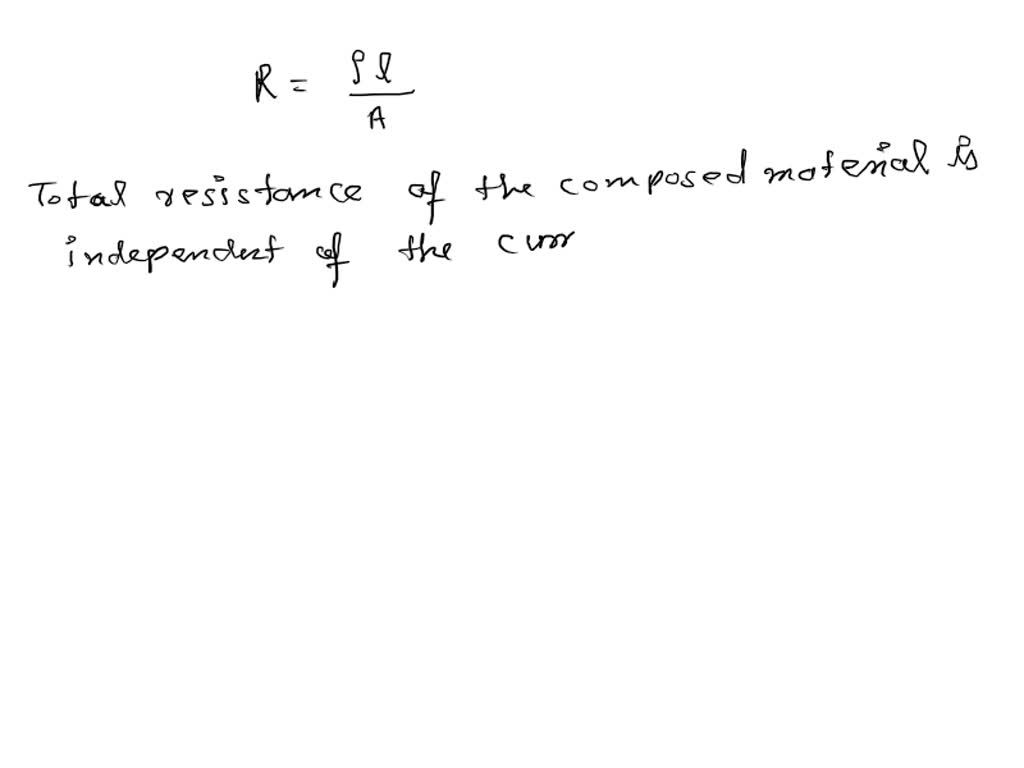 R = ρl / A
Total resistance of the composed material is
independent of the curr